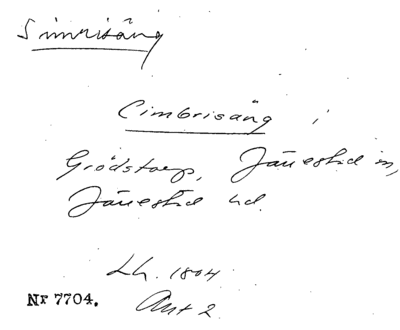 Simrisäng
Cimbrisäng i
Grödstorp, Järrestad sn,
Järrestad hd.
Lh. 1804
Nr 7704. Akt 2